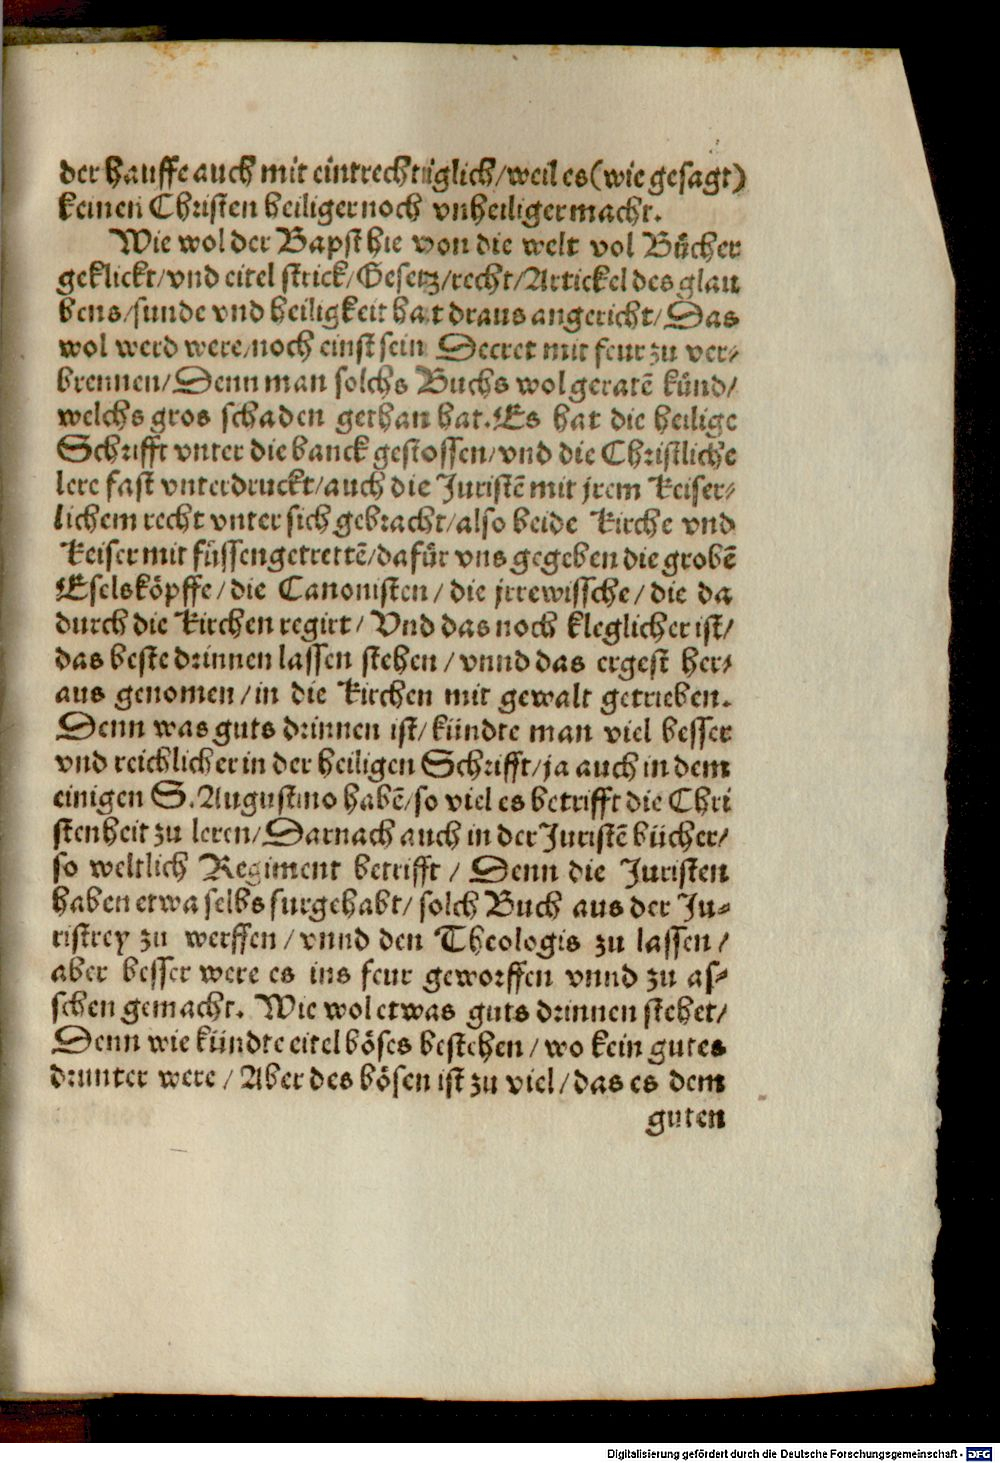 der hauffe auch mit eintrechtiglich/weil es (wie gesagt)
keinen Christen heiliger noch vnheiliger macht.
Wie wol der Bapst hie von die welt vol Bücher
geklickt/vnd eitel strick/Gesetz/recht/Artickel des glau
bens/sunde vnd heiligkeit hat draus angericht/Das
wol werd were/noch einst sein Decret mit feur zu ver⸗
brennen/Denn man solchs Buchs wol geratē künd/
welchs gros schaden gethan hat. Es hat die heilige
Schrifft vnter die banck gestossen/vnd die Christliche
lere fast vnterdruckt/auch die Juristē mit jrem Keiser⸗
lichem recht vnter sich gebracht/also beide Kirche vnd
Keiser mit füssen getrettē/dafür vns gegeben die grobē
Eselsköpffe/die Canonisten/die jrrewissche/die da
durch die Kirchen regirt/Vnd das noch kleglicher ist/
das beste drinnen lassen stehen/vnnd das ergest her⸗
aus genomen/in die Kirchen mit gewalt getrieben.
Denn was guts drinnen ist/kündte man viel besser
vnd reichlicher in der heiligen Schrifft/ja auch in dem
einigen S. Augustino habē/so viel es betrifft die Chri
stenheit zu leren/Darnach auch in der Juristē bücher/
so weltlich Regiment betrifft/Denn die Juristen
haben etwa selbs furgehabt/solch Buch aus der Ju⸗
ristrey zu werffen/vnnd den Theologis zu lassen/
aber besser were es ins feur geworffen vnnd zu as⸗
schen gemacht. Wie wol etwas guts drinnen stehet/
Denn wie kündte eitel böses bestehen/wo kein gutes
drunter were/Aber des bösen ist zu viel/das es dem
guten
Digitalisierung gefördert durch die Deutsche Forschungsgemeinschaft - DFG